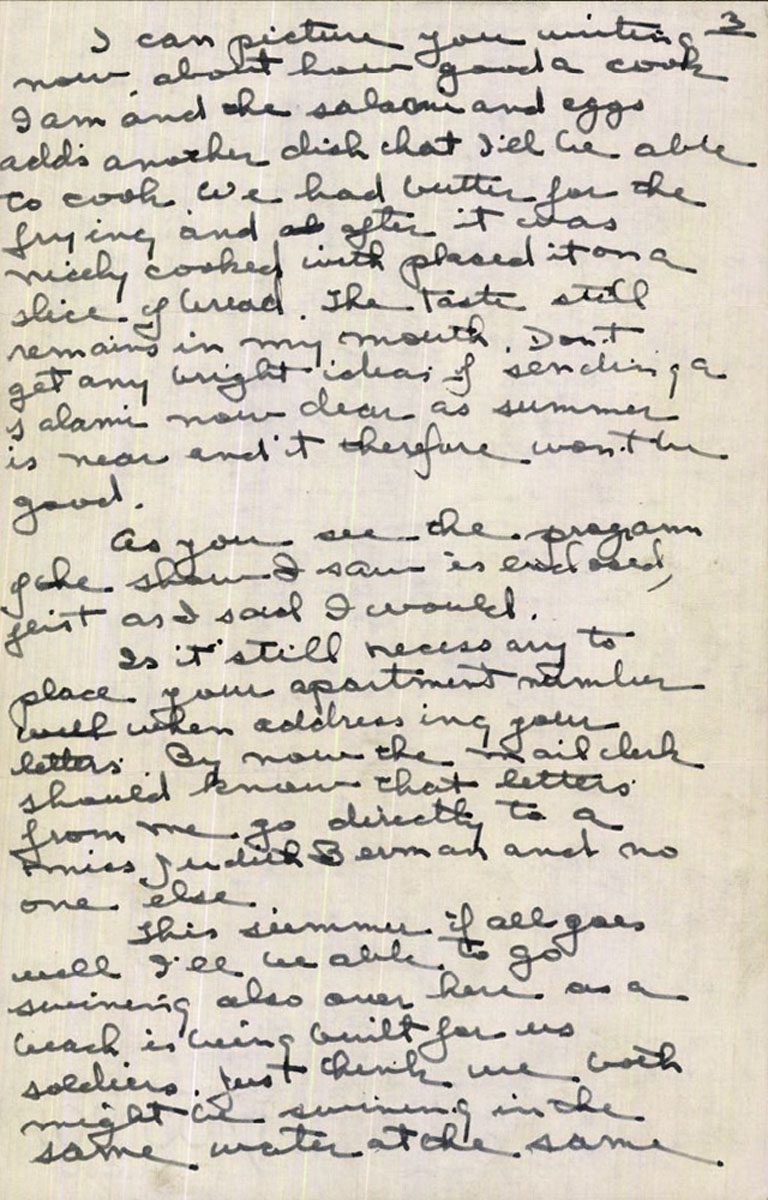 3
I can picture you writing
now about how good a cook
I am and the salami and eggs
adds another dish that I'll be able
to cook. We had butter for the
frying and after it was
nicely cooked with placed it on a
slice of bread. The taste still
remains in my mouth. Don't
get any bright ideas of sending a
salami now dear as summer
is near and it therefore won't be
good.
As you see the progamm
of the show I saw is enclosed,
just as I said I would.
Is it still necessary to
place your apartment number
when addressing your
letters. By now the mail clerk
should know that letters
from me go directly to a
miss Judith Berman and no
one else.
This summer if all goes
well I'll be able to go
swiming also over here as a
beach is being built for us
soldiers. Just think we both
might be swiming in the
same water at the same